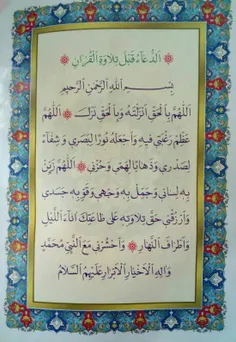 اَلدُّعَاءُ قَبْلَ تِلَاوَةِ الْقُرْاٰنِ
بِسْمِ اللهِ الرَّحْمٰنِ الرَّحِيْمِ
اَللّٰهُمَّ بِالْحَقِّ اَنْزَلْتَهُ وَبِالْحَقِّ نَزَلَ ۞ اَللّٰهُمَّ
عَظِّمْ رَغْبَتِي فِيهِ وَاجْعَلْهُ نُورًا لِبَصَرِي وَشِفَاءً
لِصَدْرِي وَذَهَابًا لِهَمِّي وَحُزْنِي ۞ اَللّٰهُمَّ زَيِّنْ
بِهِ لِسَانِي وَجَمِّلْ بِهِ وَجْهِي وَقَوِّ بِهِ جَسَدِي
وَارْزُقْنِي حَقَّ تِلَاوَتِهِ عَلٰى طَاعَتِكَ اٰنَاءَ اللَّيْلِ
وَاَطْرَافَ النَّهَارِ ۞ وَاحْشُرْنِي مَعَ النَّبِيِّ مُحَمَّدٍ
وَاٰلِهِ الْاَخْيَارِ الْاَبْرَارِ عَلَيْهِمُ السَّلَامُ